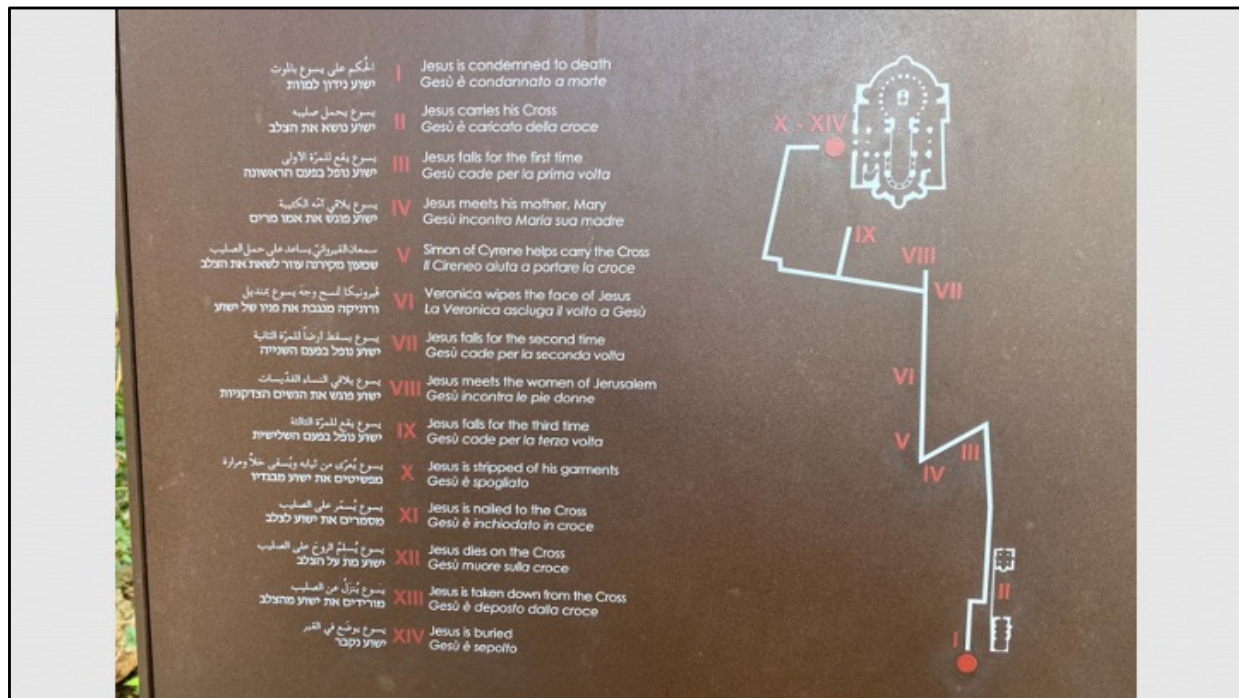 الحُكم على يسوع بالموت
ישוע נידון למוות
I
Jesus is condemned to death
Gesù è condannato a morte
يسوع يحمل صليبه
ישוע נושא את הצלב
II
Jesus carries his Cross
Gesù è caricato della croce
يسوع يقع للمرّة الأولى
ישוע נופל בפעם הראשונה
III
Jesus falls for the first time
Gesù cade per la prima volta
يسوع يلاقي أمّه الكئيبة
ישוע פוגש את אמו מרים
IV
Jesus meets his mother, Mary
Gesù incontra Maria sua madre
سمعان القيرواني يساعد على حمل الصليب
שמעון מקירנה עוזר לשאת את הצלב
V
Simon of Cyrene helps carry the Cross
Il Cireneo aiuta a portare la croce
ڤيرونيكا تمسح وجهَ يسوع بمنديل
ורוניקה מנגבת את פניו של ישוע
VI
Veronica wipes the face of Jesus
La Veronica asciuga il volto a Gesù
يسوع يسقط أرضاً للمرّة الثانية
ישוע נופל בפעם השנייה
VII
Jesus falls for the second time
Gesù cade per la seconda volta
يسوع يلاقي النساء القدّيسات
ישוע פוגש את הנשים הצדקניות
VIII
Jesus meets the women of Jerusalem
Gesù incontra le pie donne
يسوع يقع للمرّة الثالثة
ישוע נופל בפעם השלישית
IX
Jesus falls for the third time
Gesù cade per la terza volta
يسوع يُعرّى من ثيابه ويُسقى خلاً ومرارة
מפשיטים את ישוע מבגדיו
X
Jesus is stripped of his garments
Gesù è spogliato
يسوع يُسمّر على الصليب
מסמרים את ישוע לצלב
XI
Jesus is nailed to the Cross
Gesù è inchiodato in croce
يسوع يُسلمُ الروحَ على الصليب
ישוע מת על הצלב
XII
Jesus dies on the Cross
Gesù muore sulla croce
يَسوع يُنزَلُ عن الصليب
מורידים את ישוע מהצלב
XIII
Jesus is taken down from the Cross
Gesù è deposto dalla croce
يسوع يوضَع في القبر
ישוע נקבר
XIV
Jesus is buried
Gesù è sepolto
X - XIV
IX
VIII
VII
VI
V
IV
III
II
I